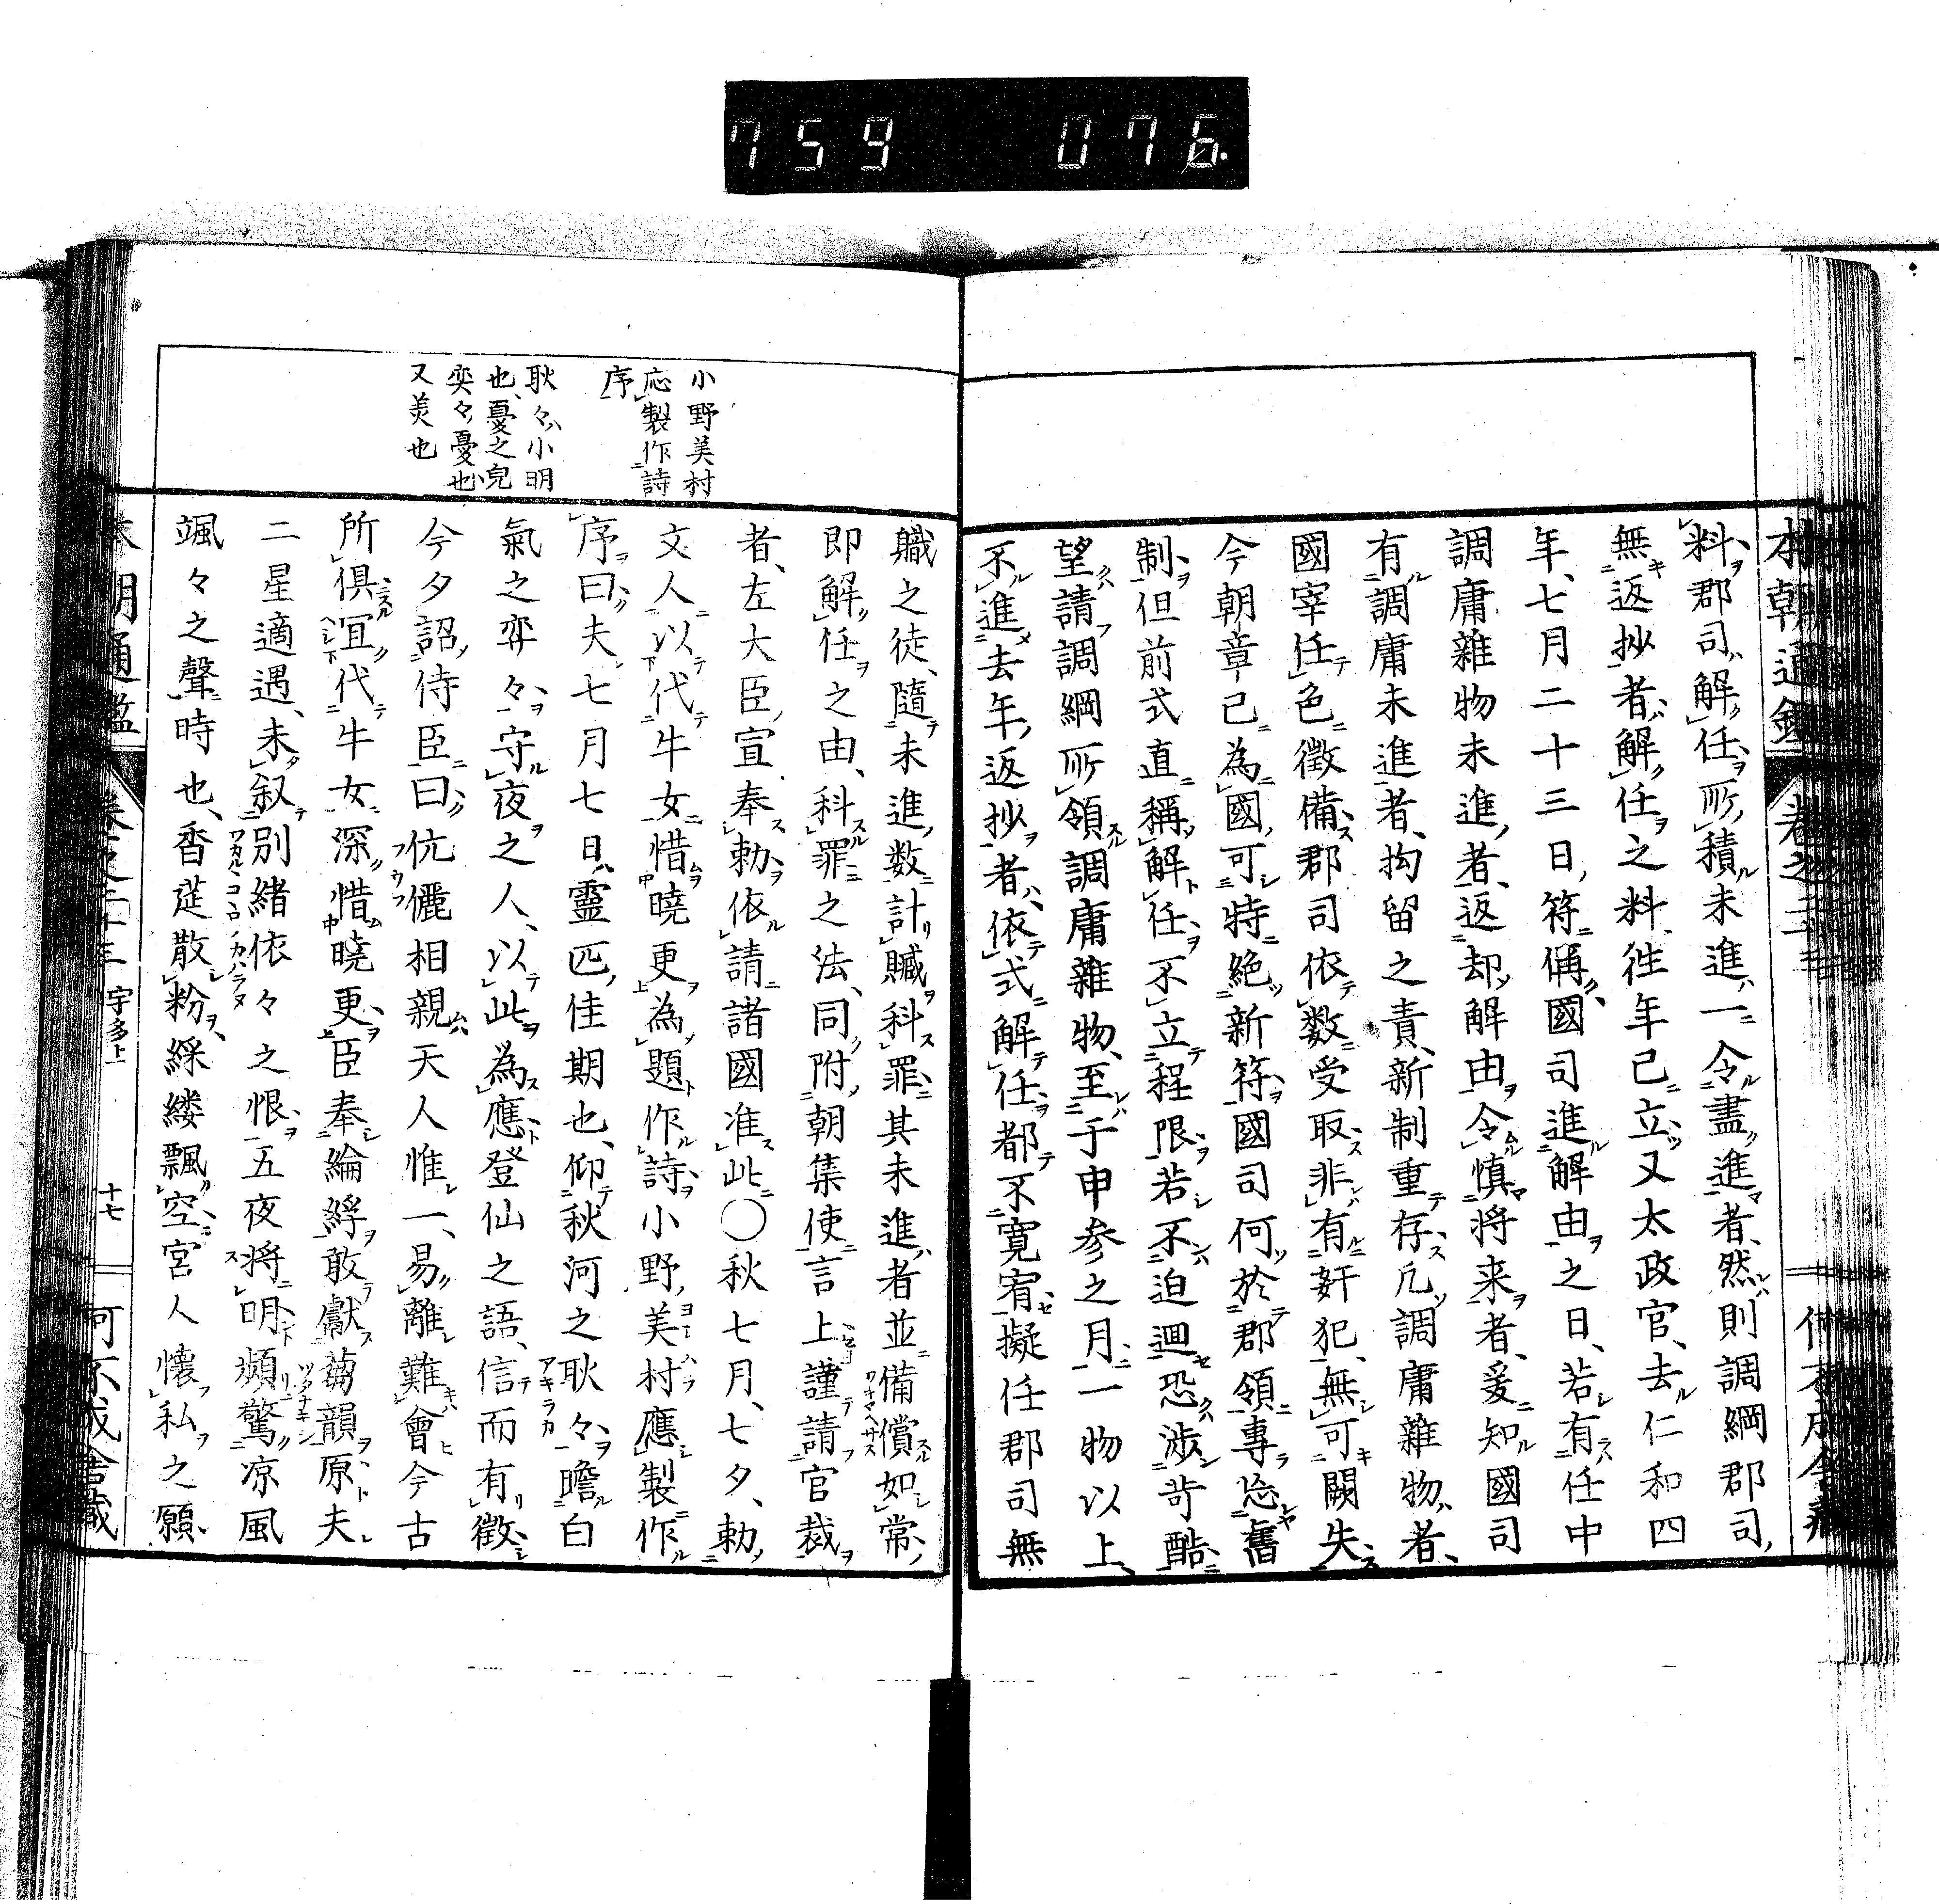 759 076
料郡司解任所積未進一令盡進者然則調綱郡司
無返抄者解任之料徃年已立又太政官去仁和四
年七月二十三日符偁國司進解由之日若有任中
調庸雜物未進者返却解由令慎将来者爰知國司
有調庸未進者抅留之責新制重存凢調庸雜物者
國宰任色徴備郡司依数受取非有奸犯無可闕失
今朝章已為國可特絶新符國司何於郡領專恣舊
制但前式直稱解任不立程限若不迫廻恐渉苛酷
望請調綱所領調庸雜物至于申参之月一物以上
不進去年返抄者依式解任都不寛宥擬任郡司無
職之徒隨未進数計贓科罪其未進者並備償如常
即解任之由科罪之法同附朝集使言上謹請官裁
者左大臣宣奉勅依請諸國准此〇秋七月七夕勅
文人以代牛女惜曉更為題作詩小野美村應製作
序曰夫七月七日靈匹佳期也仰秋河之耿々瞻白
氣之弈々守夜之人以此為應登仙之語信而有徴
今夕詔侍臣曰伉儷相親天人惟一易離難會今古
所倶冝代牛女深惜曉更臣奉綸綍敢獻蒭韻原夫
二星適遇未叙別緒依々之恨五夜将明頻驚凉風
颯々之聲時也香莚散粉綵縷飄空宮人懐私之願
小野美村
応製作詩
序
耿々小明
也憂之皃
奕々憂也
又美也
本朝通鑑 卷之二十三 宇多上 十七